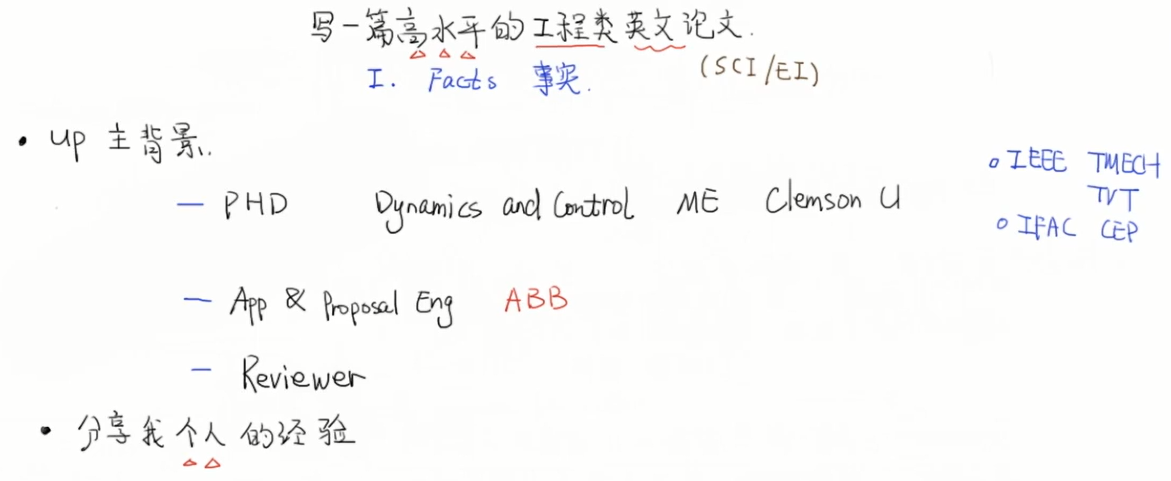 写一篇高水平的工程类英文论文.
(SCI/EI)
I. Facts 事实.
• up 主背景.
— PHD Dynamics and Control ME Clemson U
o IEEE TMECH
TVT
o IFAC CEP
— App & Proposal Eng ABB
— Reviewer
• 分享我个人的经验